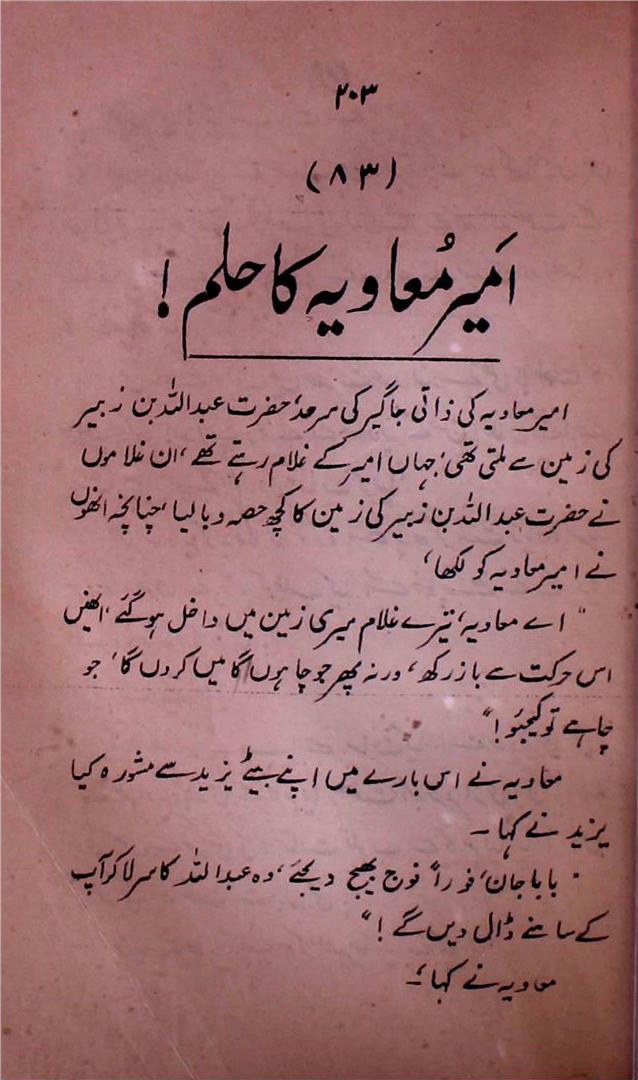 ۲۰۳
(۸۳)
امیر مُعاویہ کا حلم!
امیر معاویہ کی ذاتی جاگیر کی سرحد، حضرت عبداللہ بن زبیر
کی زمین سے ملتی تھی، جہاں امیر کے غلام رہتے تھے، ان غلاموں
نے حضرت عبداللہ بن زبیر کی زمین کا کچھ حصہ دبا لیا، چنانچہ انھوں
نے امیر معاویہ کو لکھا،
"اے معاویہ، تیرے غلام میری زمین میں داخل ہو گئے، انھیں
اس حرکت سے باز رکھ، ورنہ پھر جو چاہوں گا میں کر دوں گا، جو
چاہے تو کیجیو!"
معاویہ نے اس بارے میں اپنے بیٹے یزید سے مشورہ کیا
یزید نے کہا۔
"بابا جان، فوراً فوج بھیج دیجئے، وہ عبداللہ کا سر لا کر آپ
کے سامنے ڈال دیں گے!"
معاویہ نے کہا،۔